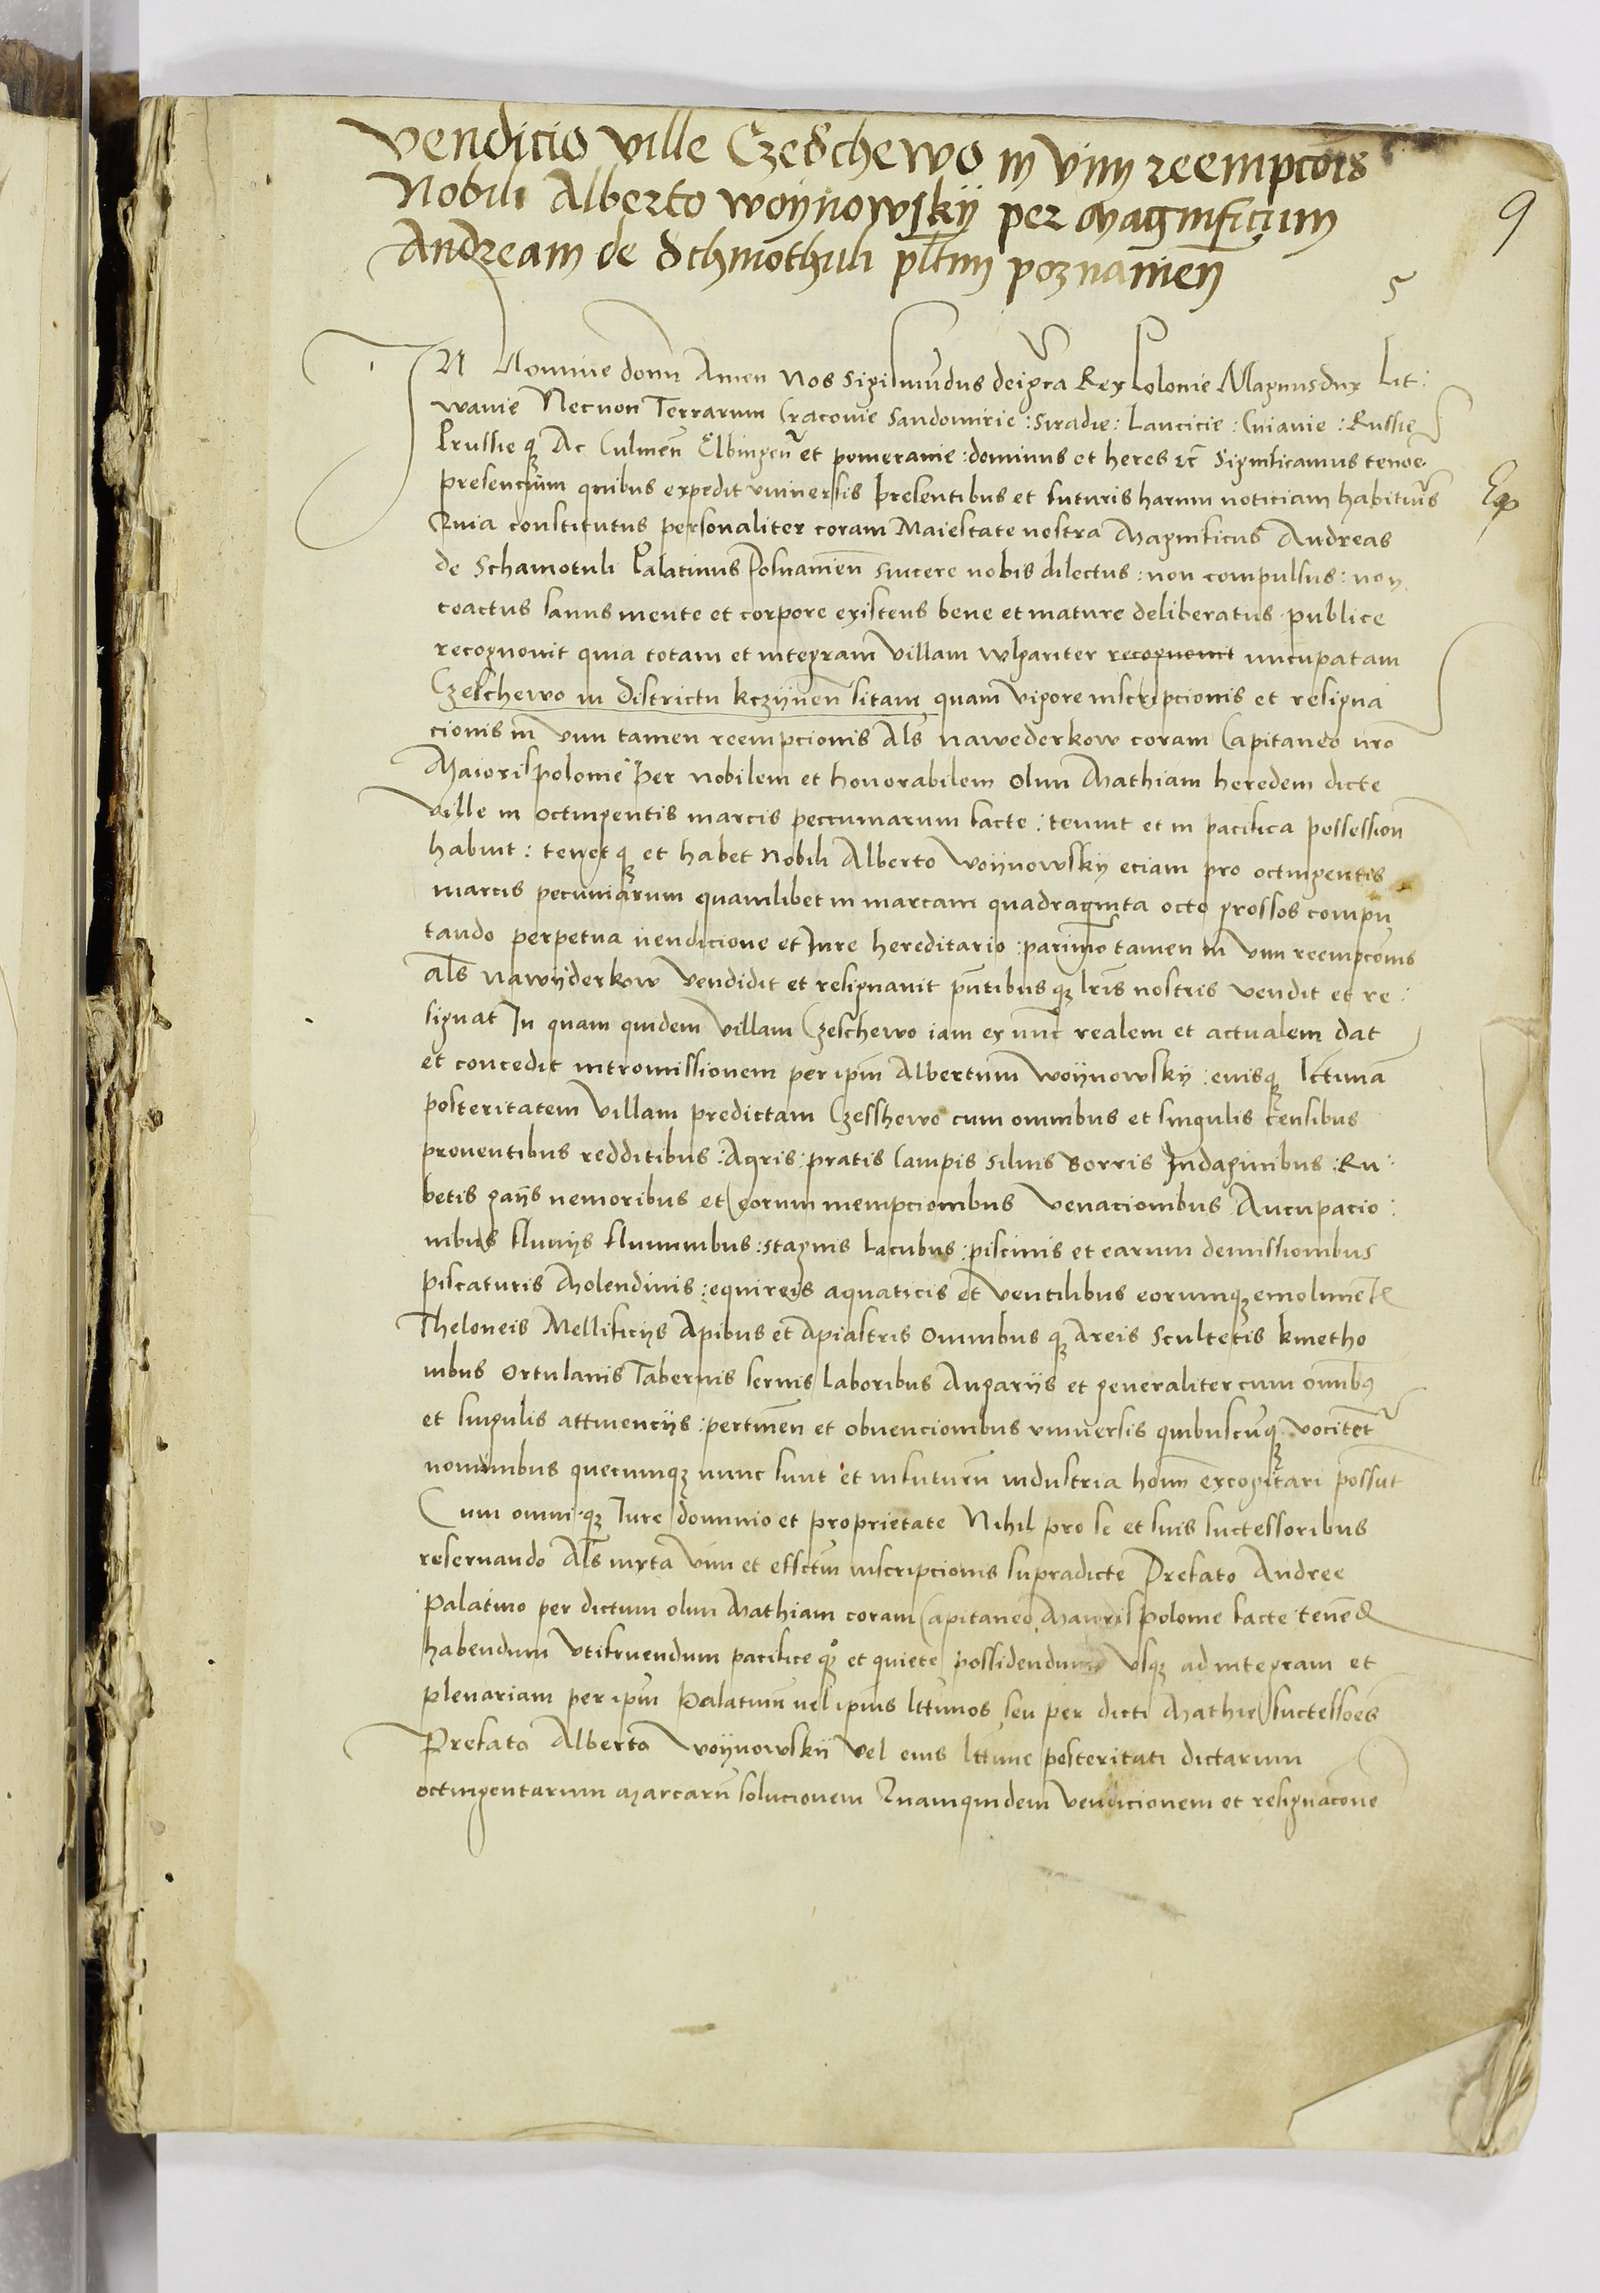 Vendicio ville Czeschewo in vim reempcois
Nobili Alberto woynowskÿ per Magnificum
Andream de Schmothuli pltm poznanien
9
5
In Nomine domi Amen Nos Sigismundus dei gra Rex Polonie Magnus dux Lit:
wanie Necnon Terrarum Cracouie Sandomirie: Siradie: Lancicie: Cuiauie: Russie
Prussie qʒ Ac Culmen Elbingen et pomeranie: dominus et heres etc Significamus tenoe
presencium quibus expedit vniuersis presentibus et futuris harum noticiam habituris
Quia constitutus personaliter coram Maiestate nostra Magnificus Andreas
de Schamotuli Palatinus Posnanien sincere nobis dilectus: non compulsus: non
coactus sanus mente et corpore existens bene et mature deliberatus publice
recognouit quia totam et integram villam wlgariter recognouit nuncupatam
Czeschewo in districtu kczÿnen sitam quam vigore inscripcionis et resigna
cionis in vim tamen reempcionis Als nawederkow coram Capitaneo nro
Maioris polonie per nobilem et honorabilem olim Mathiam heredem dicte
ville in octingentis marcis peccuniarum facte: tenuit et in pacifica possession
habuit: tenet qʒ et habet Nobili Alberto woÿnowskÿ eciam pro octingentis
marcis pecuniarum quamlibet in marcam quadraginta octo grossos compu
tando perpetua vendicione et Iure hereditario: parimo tamen in vim reempcois
als nawÿderkow vendidit et resignauit pntibus qʒ lris nostris vendit et re:
signat In quam quidem villam Czeschewo iam ex nunc realem et actualem dat
et concedit intromissionem per ipm Albertum woÿnowskÿ: eiusqʒ lttimā
posteritatem villam predictam Czesshewo cum omnibus et singulis censibus
prouentibus redditibus: Agris: pratis Campis siluis Borris Indaginibus: Ru:
betis gaÿs nemoribus et eorum mempcionibus venacionibus Aucupacio:
nibus fluuÿs fluminibus: stagnis lacubus: piscinis et earum demissionibus
piscaturis Molendinis: equireis aquaticis et ventilibus eorumqʒ emolument
Theloneis Mellificÿs Apibus et Apiastris omnibus qʒ Areis scultetis kmetho
nibus ortulanis Tabernis seruis laboribus Angarÿs et generaliter cum omnibus
et singulis attinencÿs: pertinen et obuencionibus vniuersis quibuscūqʒ vocitent
nominibus quecumqʒ nunc sunt et in futurū industria homi excogitari possut
Cum omni qʒ Iure dominio et proprietate Nihil pro se et suis successoribus
reseruando Als iuxta vim et effctum inscripcionis supradicte Prefato Andree
Palatino per dictum olim Mathiam coram Capitaneo Maioris Polonie facte tenend
habendum vtifruendum pacifice qʒ et quiete possidendum vsqʒ ad integram et
plenariam per ipm Palatinū vel ipius lttimos seu per dicti Mathie successoes
Prefato Alberto woÿnowskÿ vel eius lttime posteritati dictarum
octingentarum Marcarū solucionem Quamquidem vendicionem et resignacone